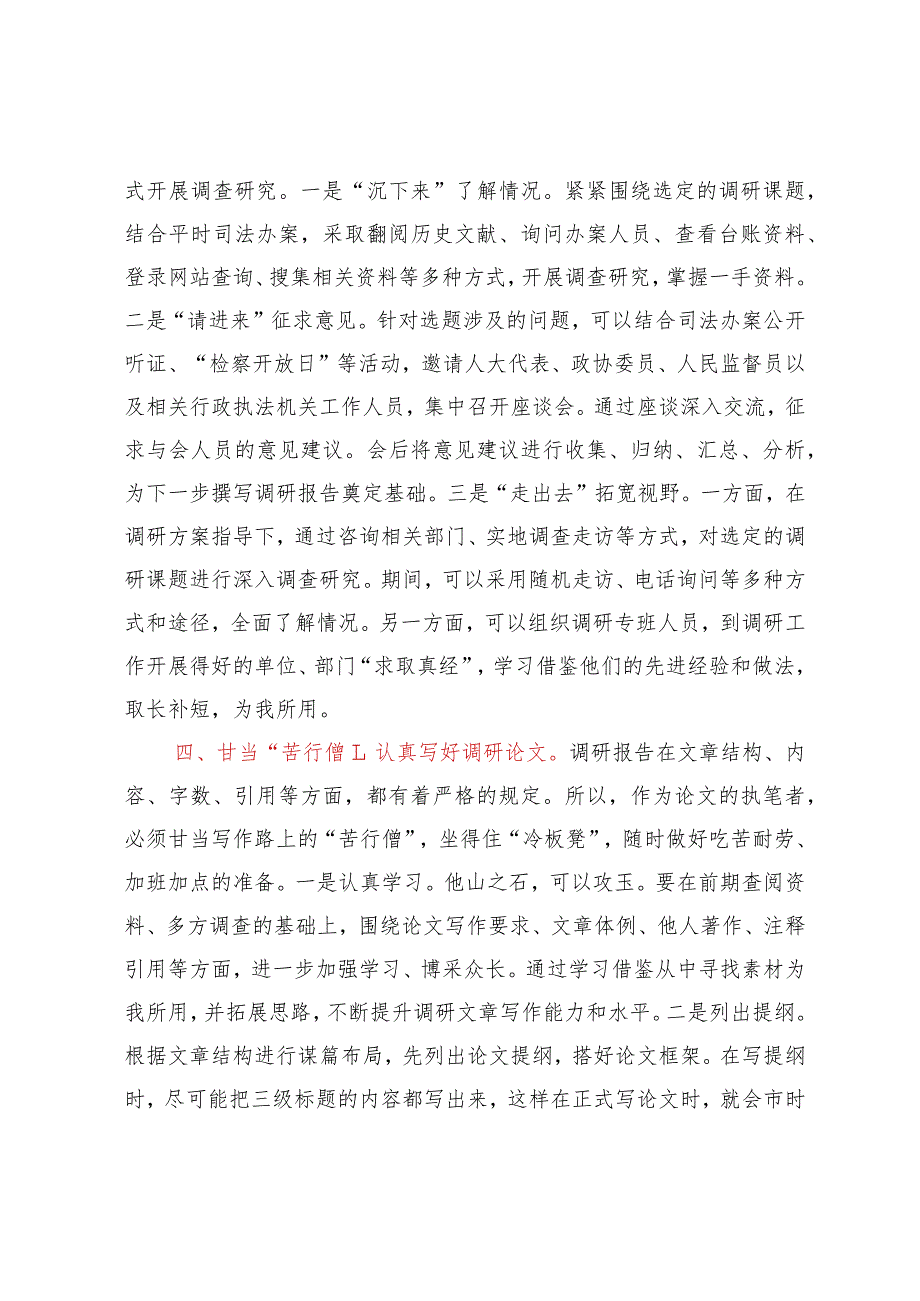 式开展调查研究。一是“沉下来”了解情况。紧紧围绕选定的调研课题，
结合平时司法办案，采取翻阅历史文献、询问办案人员、查看台账资料、
登录网站查询、搜集相关资料等多种方式，开展调查研究，掌握一手资料。
二是“请进来”征求意见。针对选题涉及的问题，可以结合司法办案公开
听证、“检察开放日”等活动，邀请人大代表、政协委员、人民监督员以
及相关行政执法机关工作人员，集中召开座谈会。通过座谈深入交流，征
求与会人员的意见建议。会后将意见建议进行收集、归纳、汇总、分析，
为下一步撰写调研报告奠定基础。三是“走出去”拓宽视野。一方面，在
调研方案指导下，通过咨询相关部门、实地调查走访等方式，对选定的调
研课题进行深入调查研究。期间，可以采用随机走访、电话询问等多种方
式和途径，全面了解情况。另一方面，可以组织调研专班人员，到调研工
作开展得好的单位、部门“求取真经”，学习借鉴他们的先进经验和做法，
取长补短，为我所用。
四、甘当“苦行僧L 认真写好调研论文。调研报告在文章结构、内
容、字数、引用等方面，都有着严格的规定。所以，作为论文的执笔者，
必须甘当写作路上的“苦行僧”，坐得住“冷板凳”，随时做好吃苦耐劳、
加班加点的准备。一是认真学习。他山之石，可以攻玉。要在前期查阅资
料、多方调查的基础上，围绕论文写作要求、文章体例、他人著作、注释
引用等方面，进一步加强学习、博采众长。通过学习借鉴从中寻找素材为
我所用，并拓展思路，不断提升调研文章写作能力和水平。二是列出提纲。
根据文章结构进行谋篇布局，先列出论文提纲，搭好论文框架。在写提纲
时，尽可能把三级标题的内容都写出来，这样在正式写论文时，就会市时